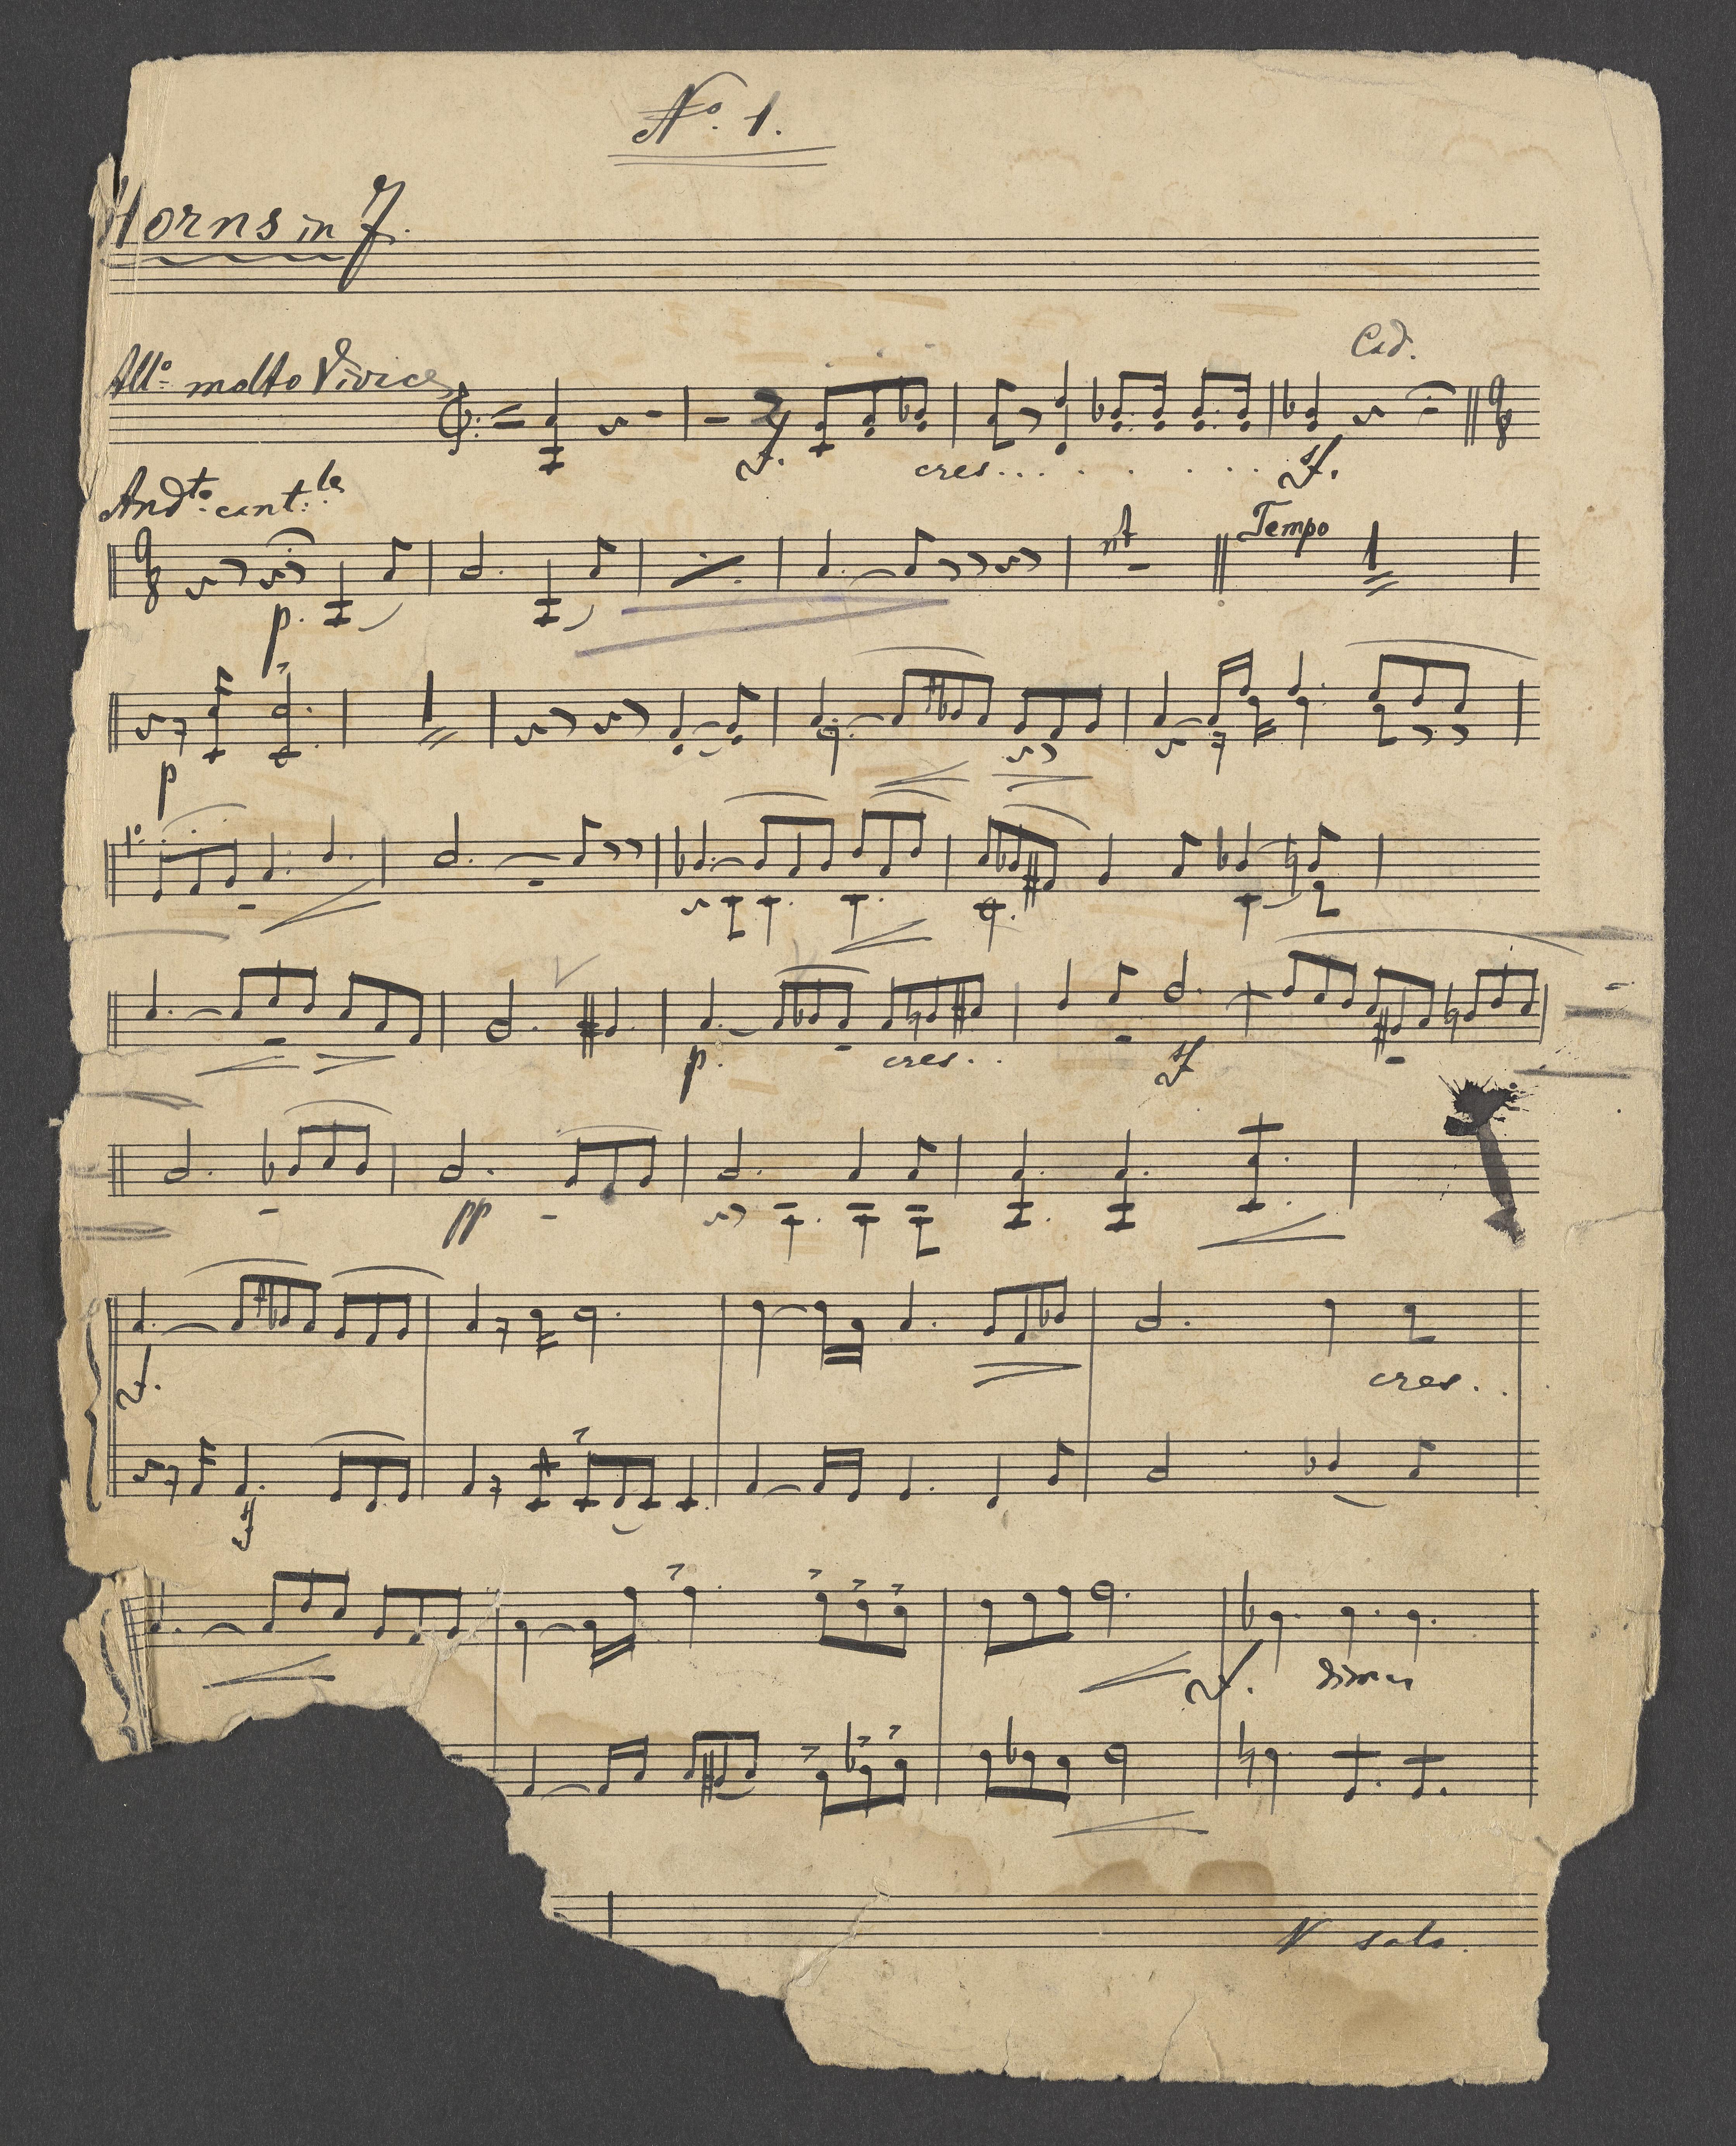 No. 1.
Horns in F.
Cad.
Allo molto Vivace
f. cres.... . . . . . sf.
Andto. cant:le
Tempo
p.
p
p. cres. . . sf
pp
f. cres. . .
sf
f.
V solo.